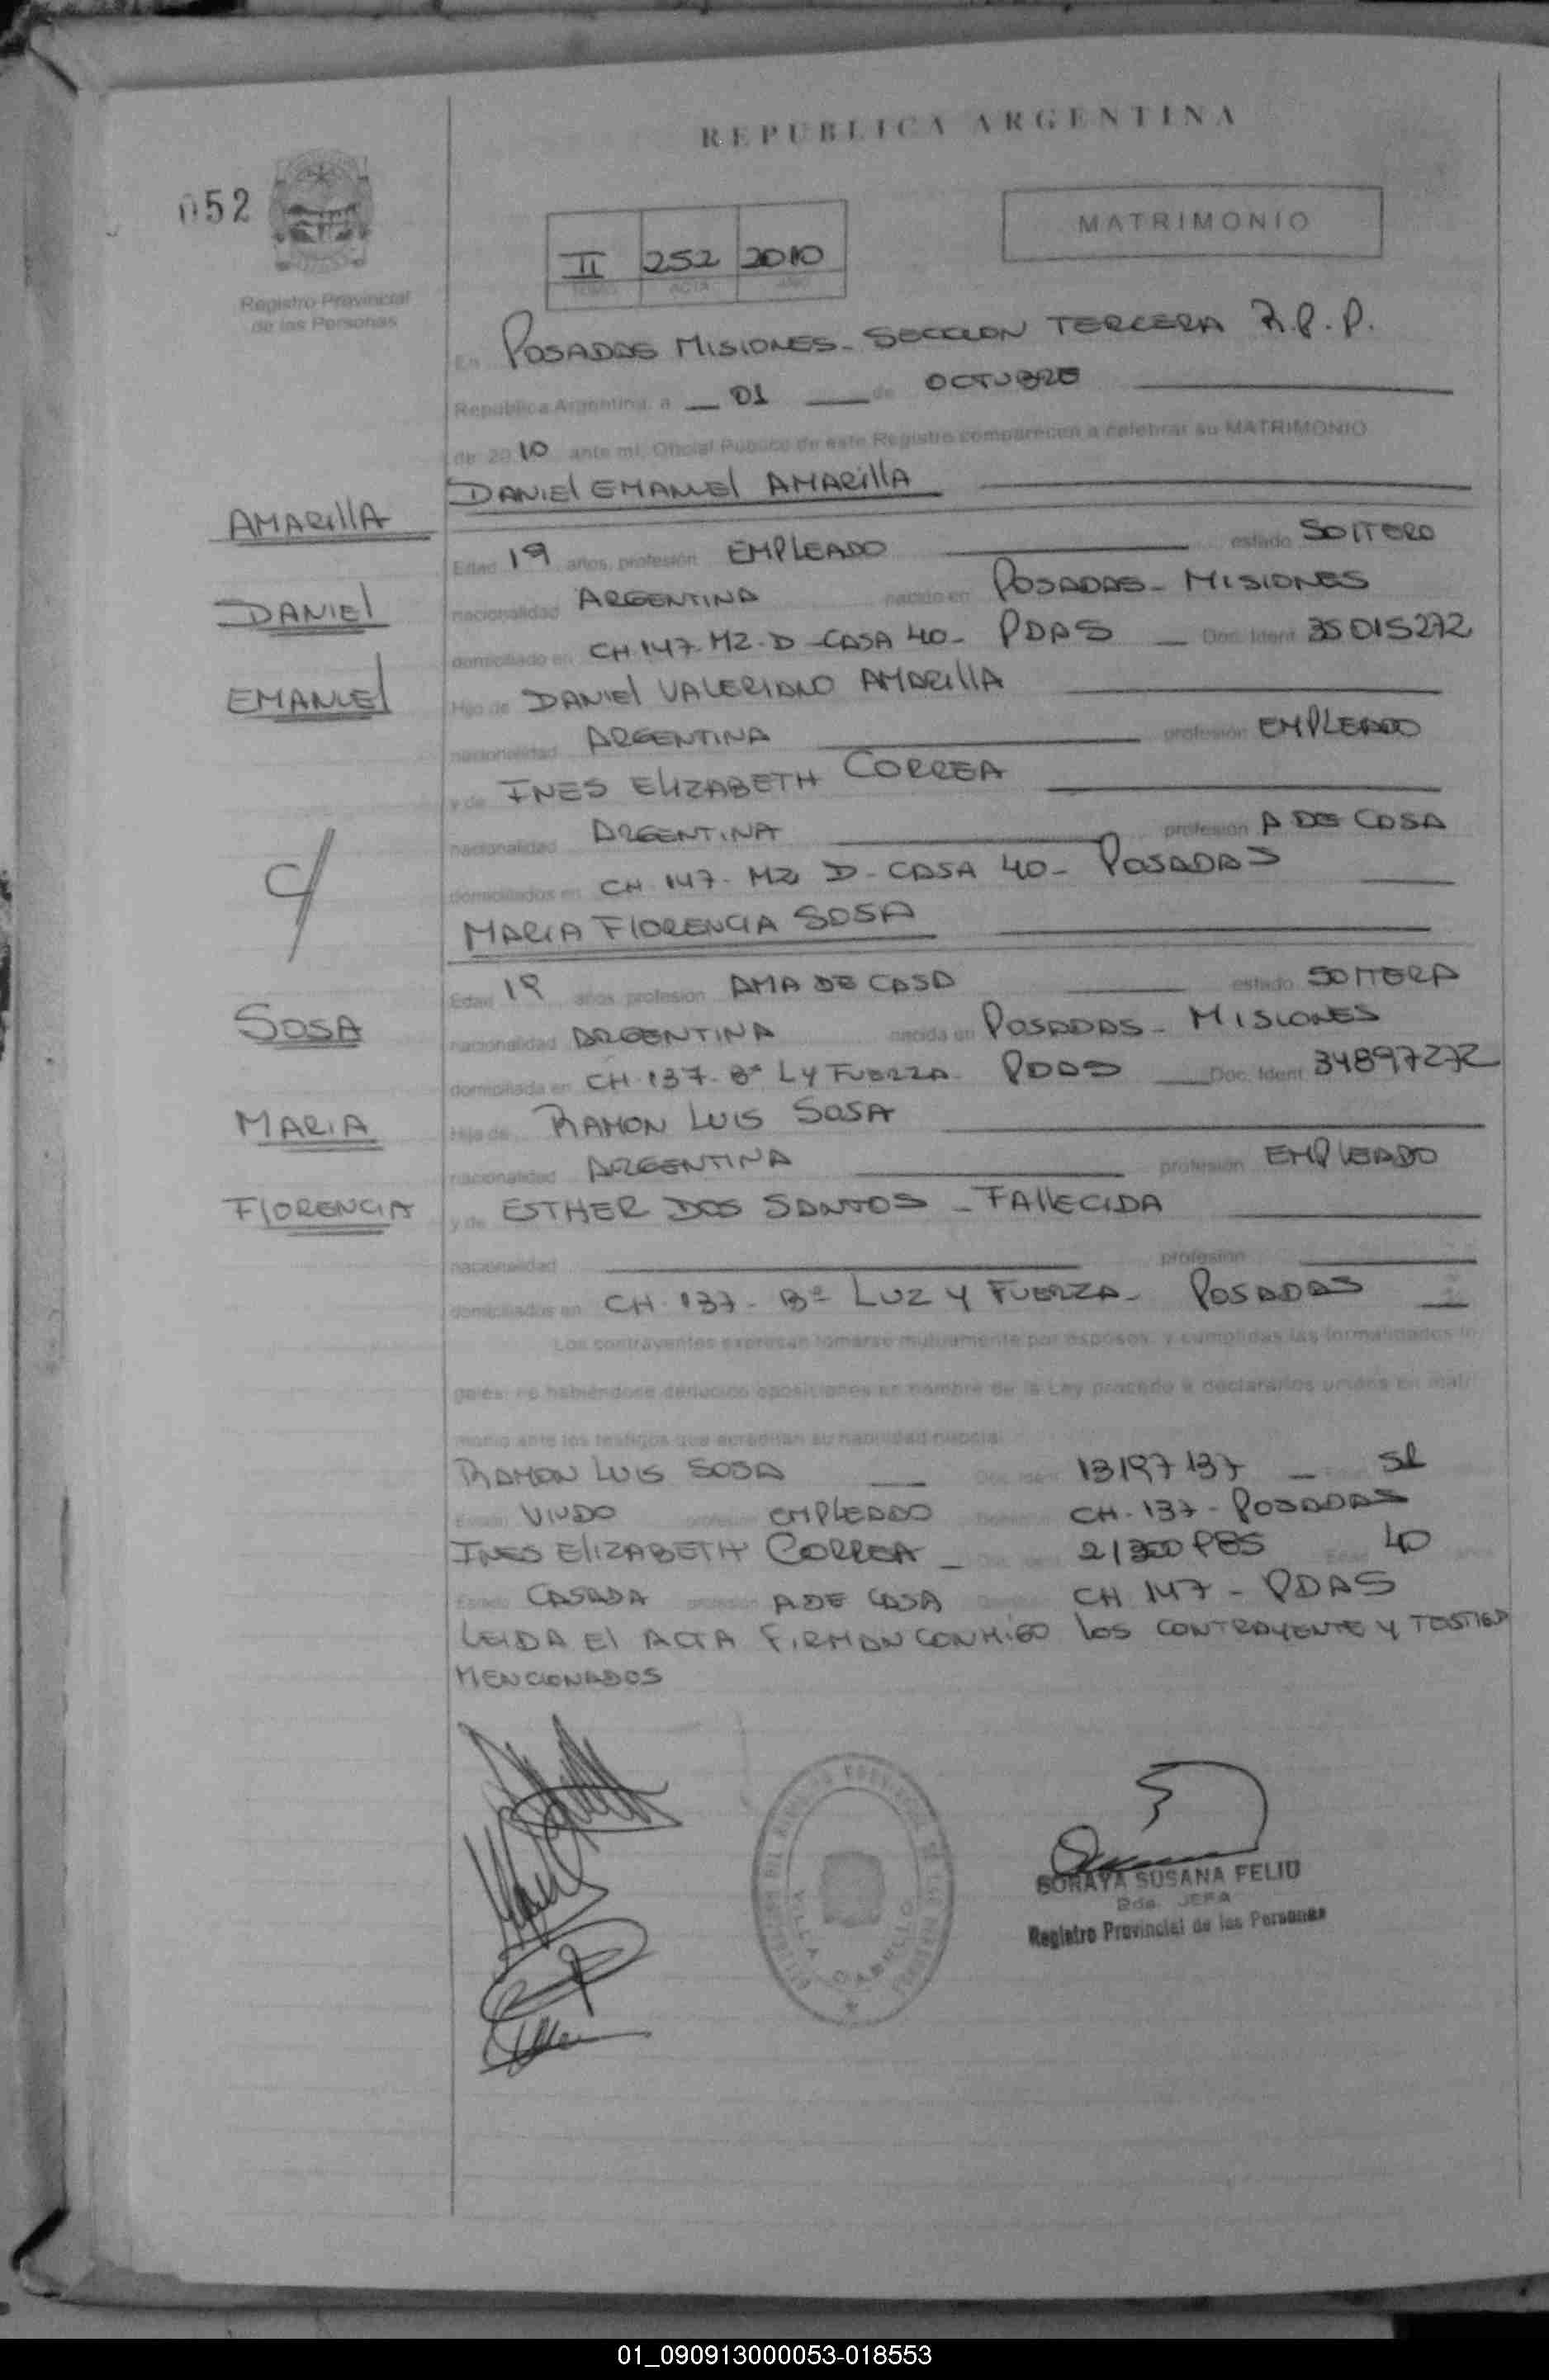 REPUBLICA ARGENTINA
052
MATRIMONIO
II 252 2010
TOMO ACTA AÑO
Registro Provincial
de las Personas
En POSADAS MISIONES - SECCION TERCERA R.P.P.
República Argentina, a 01 de OCTUBRE
de 2010 ante mí, Oficial Público de este Registro comparecen a celebrar su MATRIMONIO
DANIEL EMANUEL AMARILLA
AMARILLA
Edad 19 años, profesión EMPLEADO estado SOLTERO
DANIEL
nacionalidad ARGENTINA nacido en POSADAS - MISIONES
domiciliado en CH 147 - MZ - D - CASA 40 - PDAS Doc. Ident. 35015272
EMANUEL
Hijo de DANIEL VALERIANO AMARILLA
nacionalidad ARGENTINA profesión EMPLEADO
y de INES ELIZABETH CORREA
nacionalidad ARGENTINA profesión A DE CASA
domiciliados en CH 147 - MZ D - CASA 40 - POSADAS
C/
MARIA FLORENCIA SOSA
Edad 19 años profesión AMA DE CASA estado SOLTERA
SOSA
nacionalidad ARGENTINA nacida en POSADAS - MISIONES
domiciliada en CH 137 - Bº L Y FUERZA - PDAS Doc. Ident. 34897272
MARIA
Hija de RAMON LUIS SOSA
nacionalidad ARGENTINA profesión EMPLEADO
FLORENCIA
y de ESTHER DOS SANTOS - FALLECIDA
nacionalidad profesión
domiciliados en CH 137 - Bº LUZ Y FUERZA - POSADAS
Los contrayentes expresan tomarse mutuamente por esposos, y cumplidas las formalidades le
gales, no habiéndose deducido oposiciones en nombre de la Ley procedo a declararlos unidos en matri
monio ante los testigos que acreditan su habilidad nupcial
RAMON LUIS SOSA Doc. Ident. 13197137
Estado VIUDO profesión EMPLEADO CH - 137 - POSADAS
INES ELIZABETH CORREA Edad 40 años
Estado CASADA profesión A DE CASA CH 147 - PDAS
LEIDA EL ACTA FIRMAN CONMIGO LOS CONTRAYENTE Y TESTIGO
MENCIONADOS
VILLA CABELLO
SORAYA SUSANA FELIU
2da. JEFA
Registro Provincial de las Personas
01_090913000053-018553